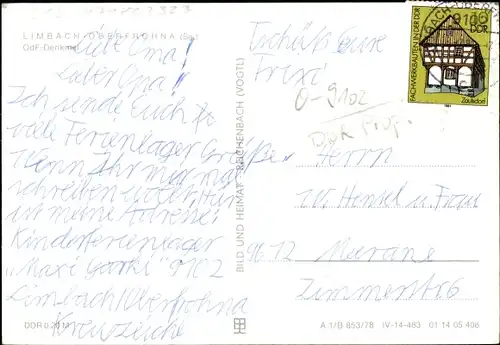 LIMBACH-OBERFROHNA (Sa.)
OdF-Denkmal
Liebe Oma!
Lieber Opa!
Ich sende Euch
viele Ferienlager Grüße
Wenn Ihr mir mal
schreiben wollt, hier
ist meine Adresse:
Kinderferienlager
"Maxi Gorki" 9102
Limbach/Oberfrohna
Kreuzeiche
DDR 0,20 M
BILD UND HEIMAT REICHENBACH (VOGTL)
Tschüß Eure
O-9102
DDR
FACHWERKBAUTEN IN DER DDR
Zaulsdorf
Herrn
W. Hensel u. Frau
9612 Meerane
Zimmerstr 6
A 1/B 853/78 IV-14-483 01 14 05 408